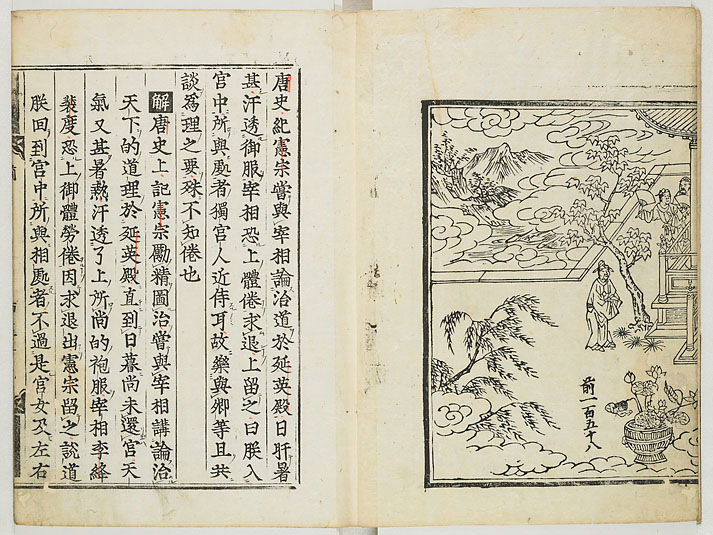 前一百五十八
唐史紀憲宗嘗與宰相論治道於延英殿日旰暑
甚汗透御服宰相恐上體倦求退上留之曰朕入
宮中所與處者獨宮人近侍耳故樂與卿等且共
談為理之要殊不知倦也
解唐史上記憲宗勵精圖治嘗與宰相講論治
天下的道理於延英殿直到日暮尚未還宮天
氣又甚暑熱汗透了上所尚的袍服宰相李絳
裴度恐上御體勞倦因求退出憲宗留之說道
朕回到宮中所與相處者不過是宮女及左右